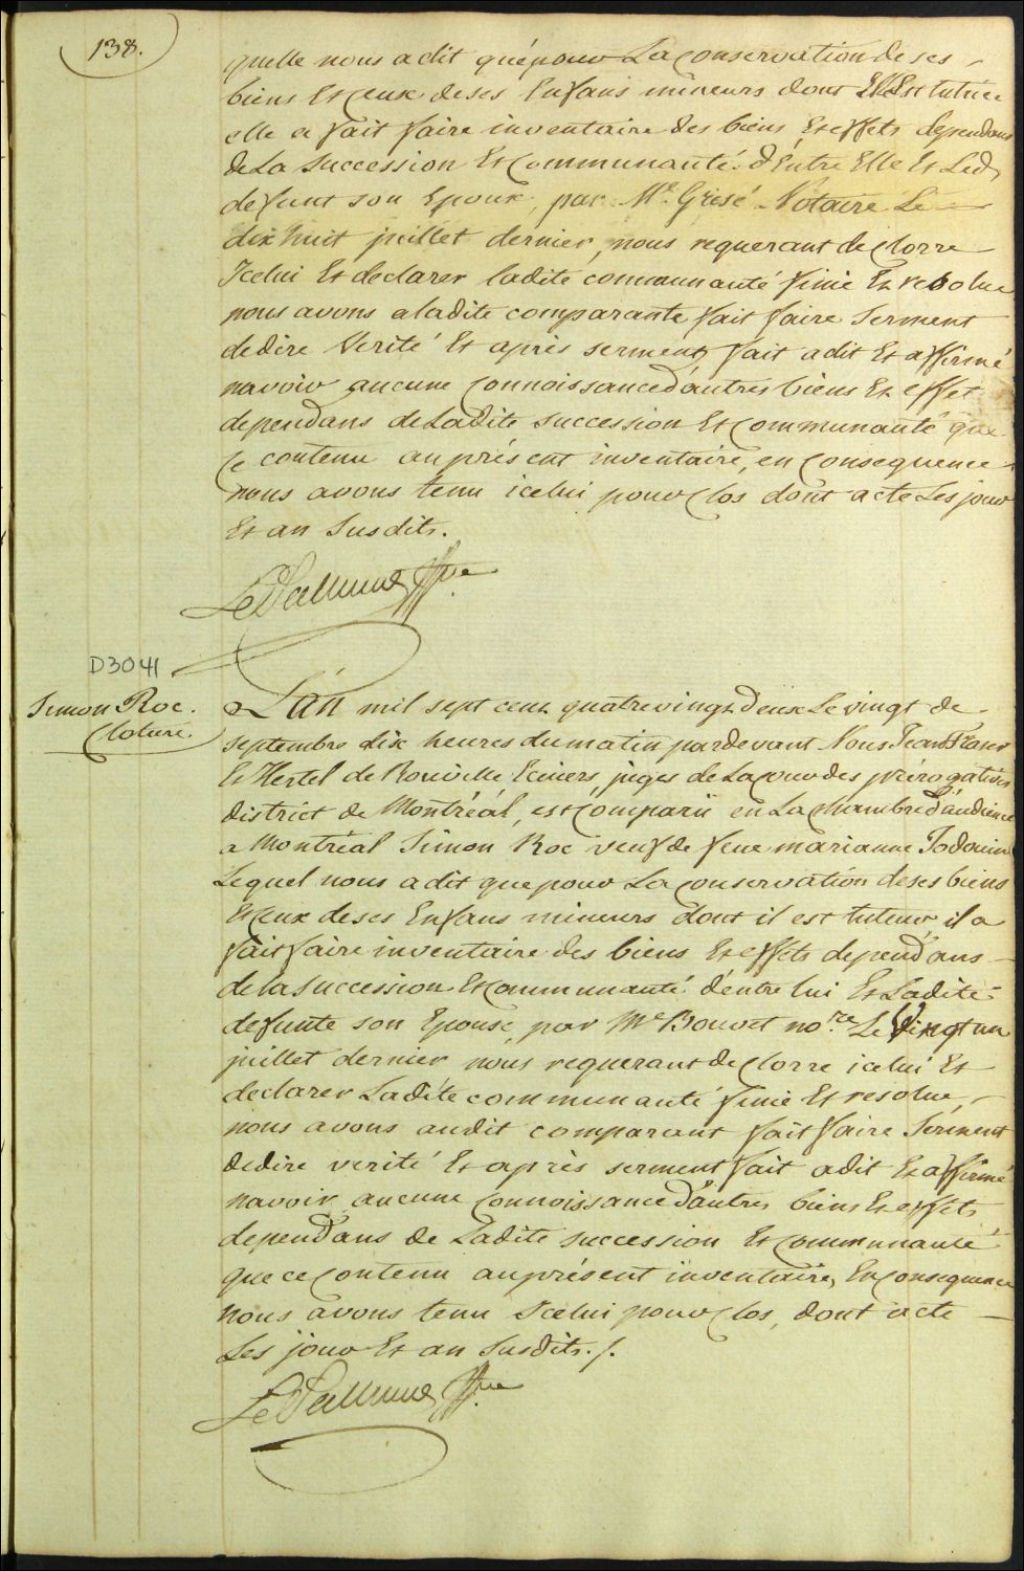 138.
quelle nous a dit qué pour La Conservation de ses
biens Et Ceux de ses Enfans mineurs dont Elle Est tutrice
elle a fait faire inventaire des biens Et effets dependans
de La Succession Et Communauté d'Entre Elle Et Led.
defunt son Epoux, par Me. Grisé Notaire Le
dix huit juillet dernier, nous requerant de Clorre
Icelui Et declarer ladite communauté finie Et resolue
nous avons a ladite comparante fait faire Serment
de dire Verité Et après serment fait a dit Et affirmé
n'avoir aucune Connoissance d'autres biens Et effet
dependans de Ladite Succession Et Communauté que
Ce contenu au présent inventaire, en Consequence
nous avons tenu icelui pour Clos dont acte Les jour
Et an Susdits.
LePallieur Gffier
D3041
Simon Roc.
Cloture.
L'an mil sept cent quatrevingt Deux Le vingt de
septembre dix heures du matin pardevant Nous Jean
Et Hertel de Rouville Ecuiers juges de La Cour des prérogatives
district de Montréal, est Comparu en La Chambre d'audience
a Montréal Simon Roc veuf de feue marianne Jodouin
Lequel nous a dit que pour La Conservation de ses biens
Et Ceux de ses Enfans mineurs dont il est tuteur il a
fait faire inventaire des biens Et effets dependans
de la Succession Et Communauté d'entre lui Et Ladite
defunte son Epouse, par Me Bouvet no.re Le Vingt un
juillet dernier nous requerant de Clorre icelui Et
declarer Ladite communauté finie Et resolue,
nous avons audit comparant fait faire Serment
de dire verité Et après serment fait a dit Et affirmé
n'avoir aucune Connoissance d'autres biens Et effets
dependans de Ladite succession Et Communauté
que ce Contenu au présent inventaire, En Consequence
nous avons tenu Icelui pour Clos, dont acte
Les jour Et an Susdits./.
LePallieur Gffier